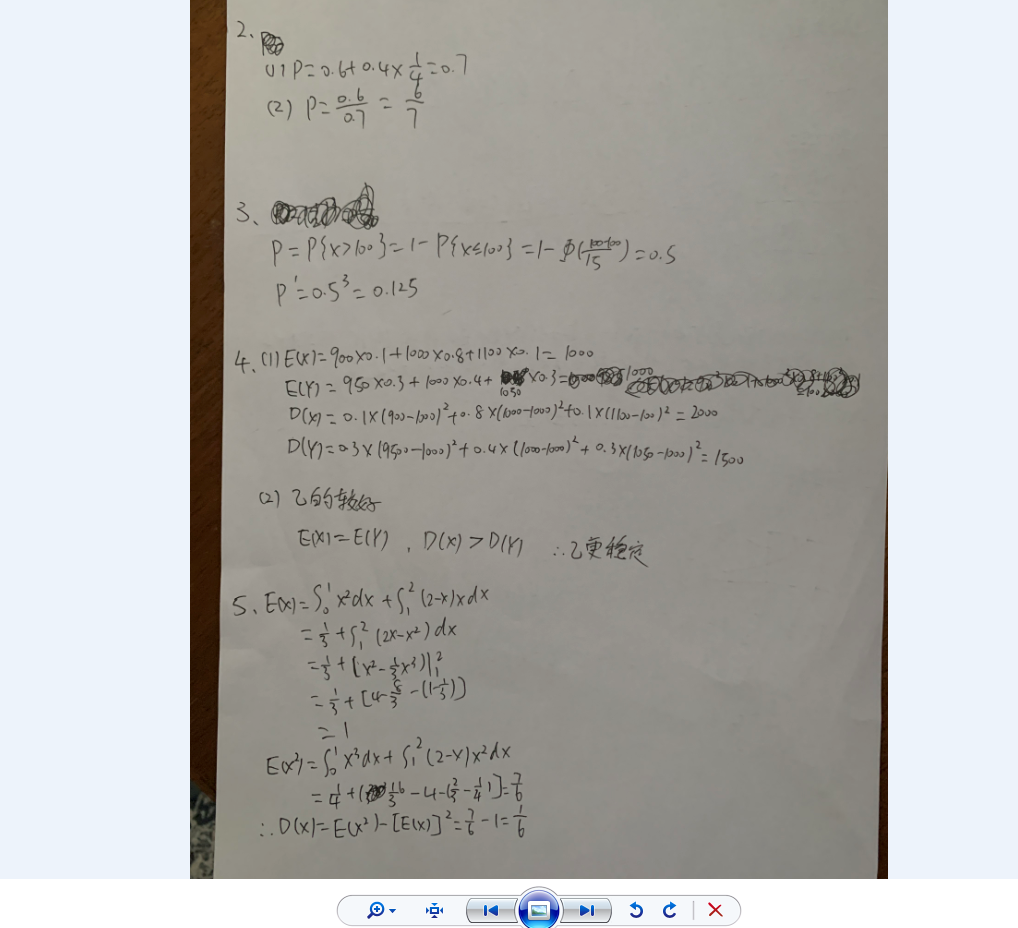 2、
(1) P=0.6+0.4×1/4=0.7
(2) P=0.6/0.7=6/7
3、
P=P{X>100}=1-P{X≤100}=1-Φ(100-100/15)=0.5
P'=0.5³=0.125
4、(1) E(X)=900×0.1+1000×0.8+1100×0.1=1000
E(Y)=950×0.3+1000×0.4+1050×0.3=1000
D(X)=0.1×(900-1000)²+0.8×(1000-1000)²+0.1×(1100-100)²=2000
D(Y)=0.3×(950-1000)²+0.4×(1000-1000)²+0.3×(1050-1000)²=1500
(2) 乙的较好
E(X)=E(Y),D(X)>D(Y) ∴乙更稳定
5、E(X)=∫₀¹x²dx+∫₁²(2-x)xdx
=1/3+∫₁²(2x-x²)dx
=1/3+[x²-1/3x³)|₁²
=1/3+[4-8/3-(1-1/3)]
=1
E(X²)=∫₀¹x³dx+∫₁²(2-x)x²dx
=1/4+(16/3-4-(2/3-1/4)]=7/6
∴D(X)=E(X²)-[E(X)]²=7/6-1=1/6